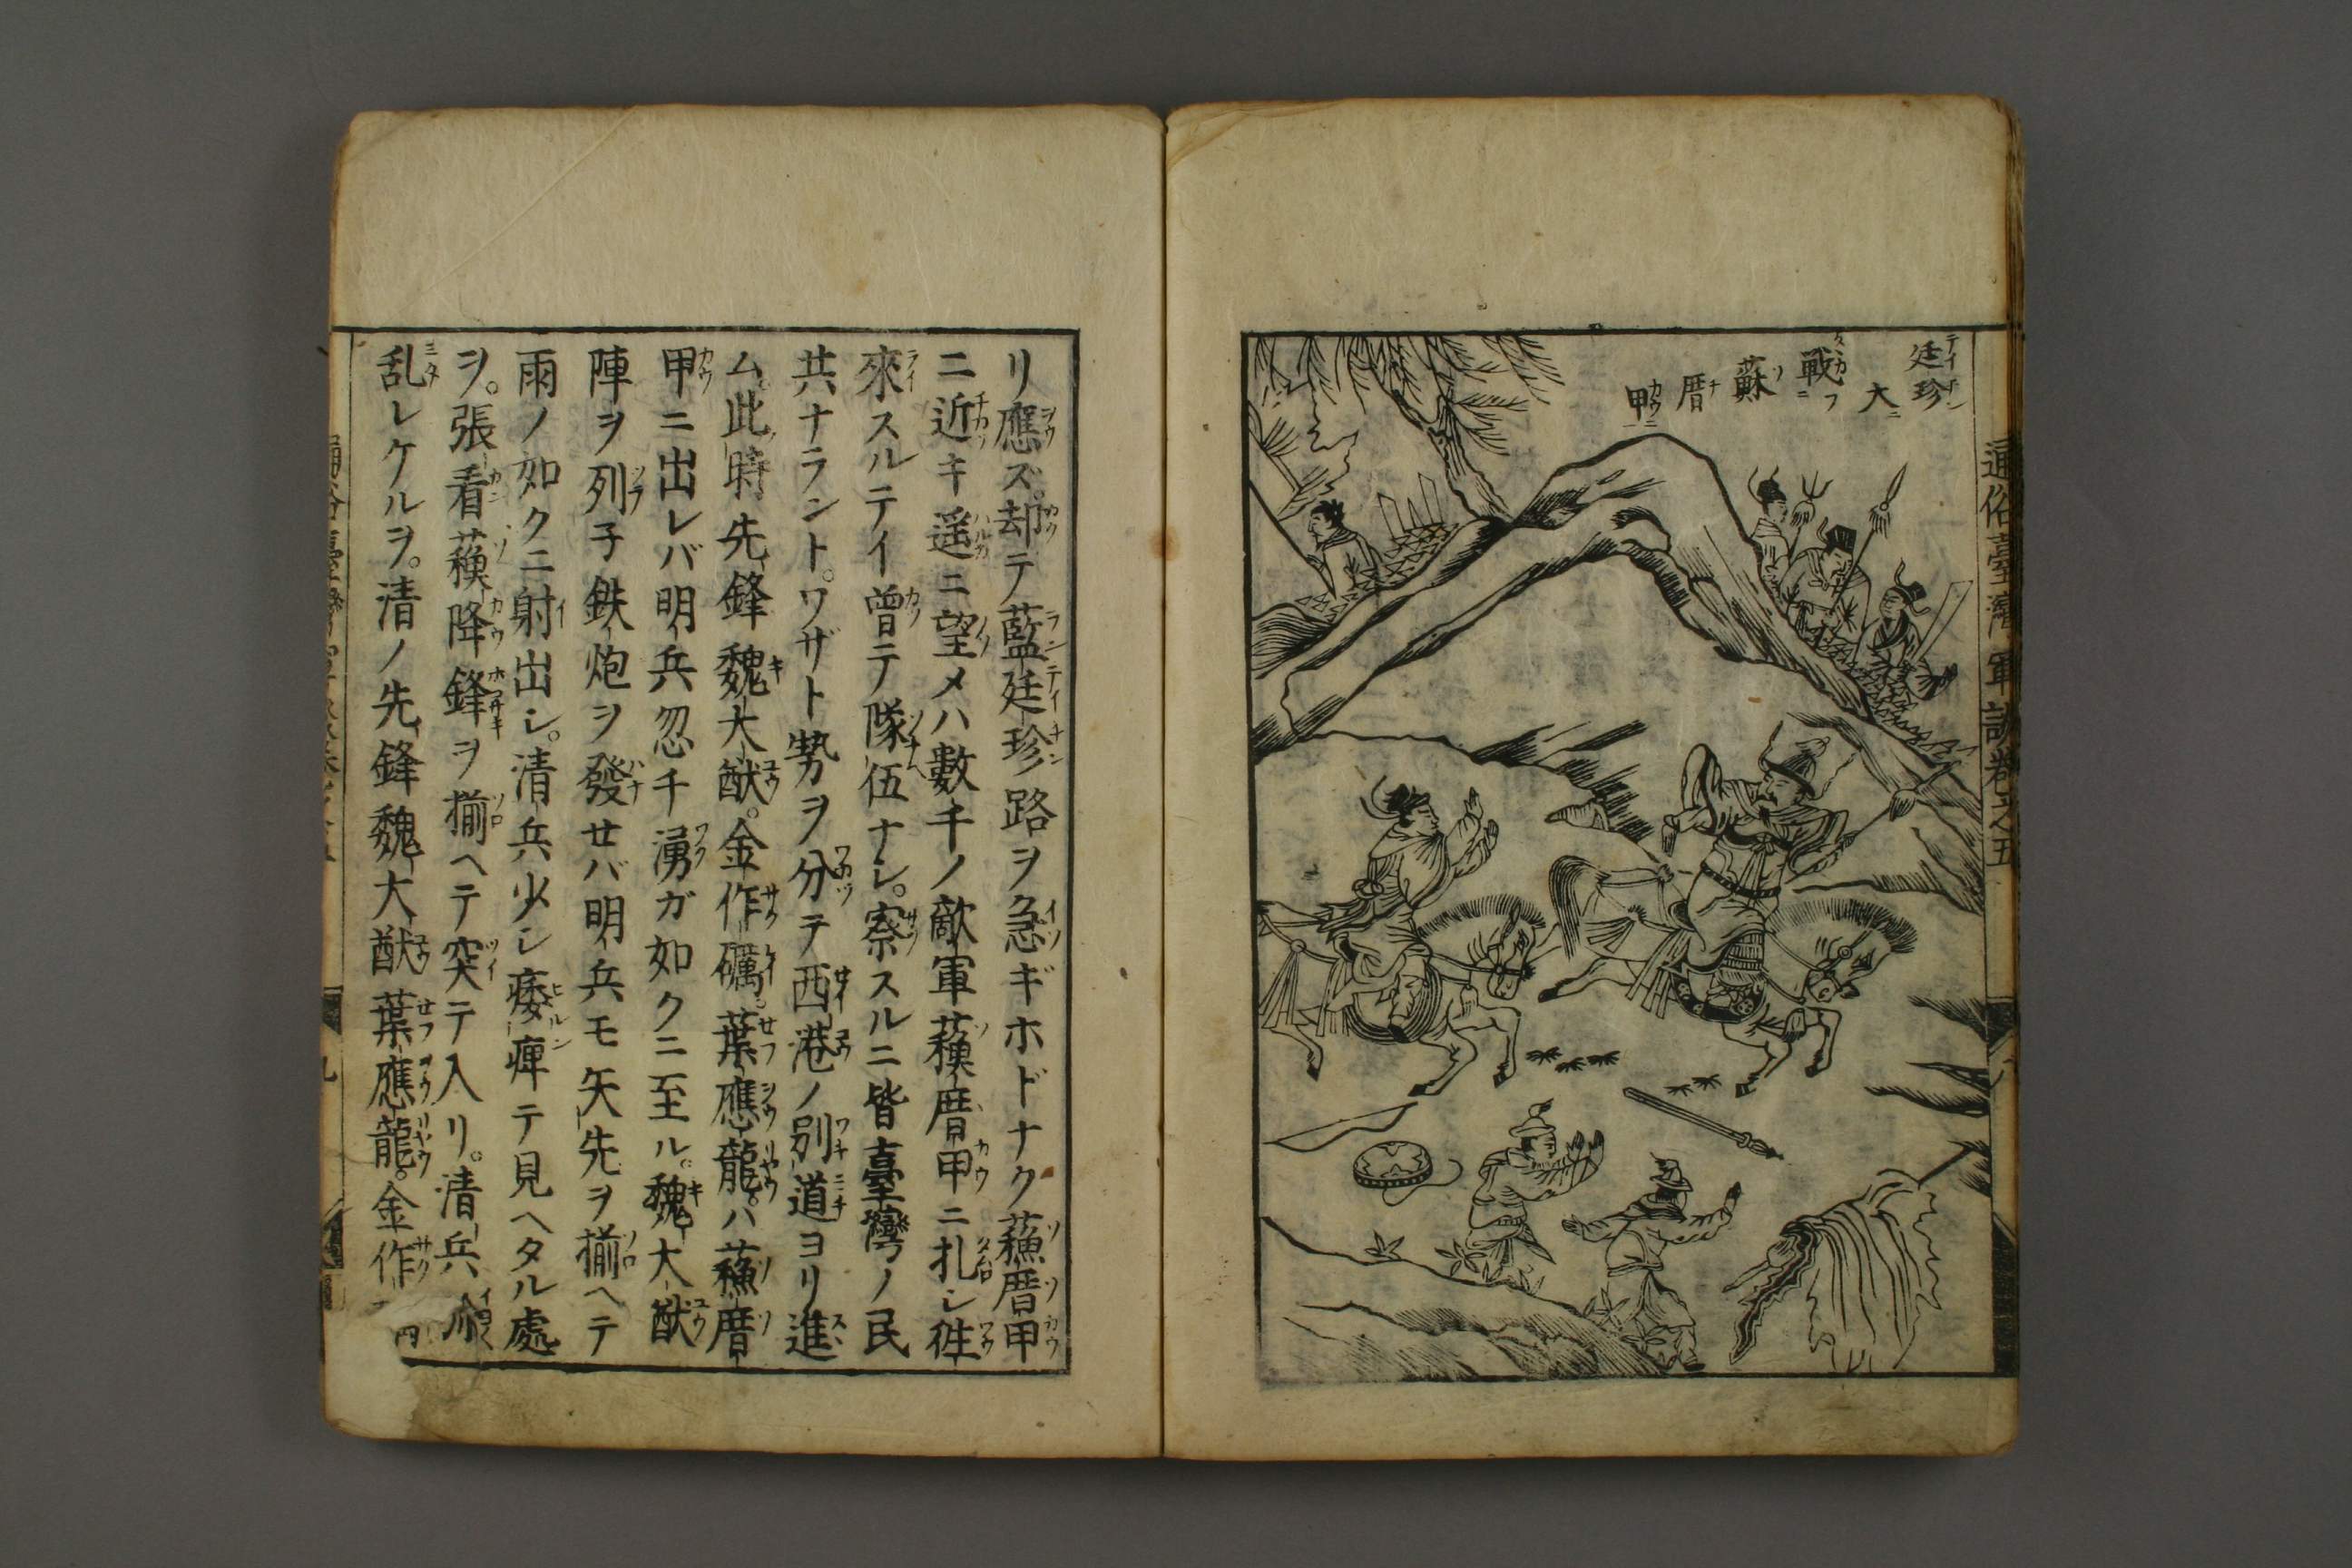 通俗臺灣軍談卷之五
八
廷珍
大ニ
戰フ
蘇
厝
甲ニ
リ應ズ。却テ藍廷珍路ヲ急ギホドナク蘓厝甲
ニ近キ遥ニ望メハ數千ノ敵軍蘓厝甲ニ札シ徃
來スルテイ曽テ隊伍ナシ。察スルニ皆臺灣ノ民
共ナラント。ワザト勢ヲ分テ西港ノ別道ヨリ進
ム。此時先鋒魏大猷。金作礪。葉應龍。ハ蘓厝
甲ニ出レバ明兵忽チ湧ガ如クニ至ル。魏大猷
陣ヲ列子鉄炮ヲ發セバ明兵モ矢先ヲ揃ヘテ
雨ノ如クニ射出シ。清兵少シ痿痺テ見ヘタル處
ヲ。張看蘓降鋒ヲ揃ヘテ突テ入リ。清兵
乱レケルヲ。清ノ先鋒魏大猷葉應龍。金作
九